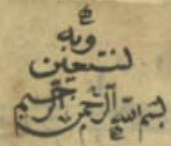 وبه
نستعين
بسم الله الرحمن الرحيم